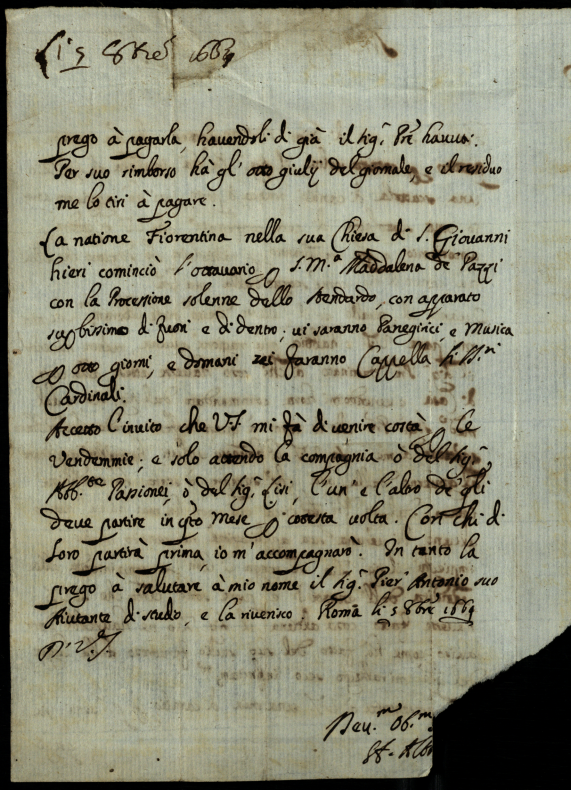 li 5 8bre 1669
prego à pagarla, havendoli di già il Sigr. Pre havuti.
Per suo rimborso hà gl' otto giulij del giornale e il residuo
me lo tiri à pagare.
La natione Fiorentina nella sua Chiesa di S. Giovanni
hieri cominciò l'ottavario p S. M.a Maddalena de Pazzi
con la Processione solenne dello stendardo, con apparato
supbissimo di fuori e di dentro; vi saranno Panegirici, e Musica
p otto giorni, e domani vi faranno Cappella li SS.ri
Cardinali.
Accetto l'invito che V.S. mi fà di venire costà p le
Vendemmie; e solo attendo la compagnia ò del Sigr.
Abb.te Passionei, ò del Sigr. , l'un' e l'altro de gli
deve partire in qto Mese p cotesta volta. Con chi di
loro partirà prima, io m'accompagnarò. In tanto la
prego à salutare à mio nome il Sigr. Pier' Antonio suo
Aiutante di studio, e la riverisco. Roma li 5 8bre 1669
Di V.S.
Dev.mo Ob.m